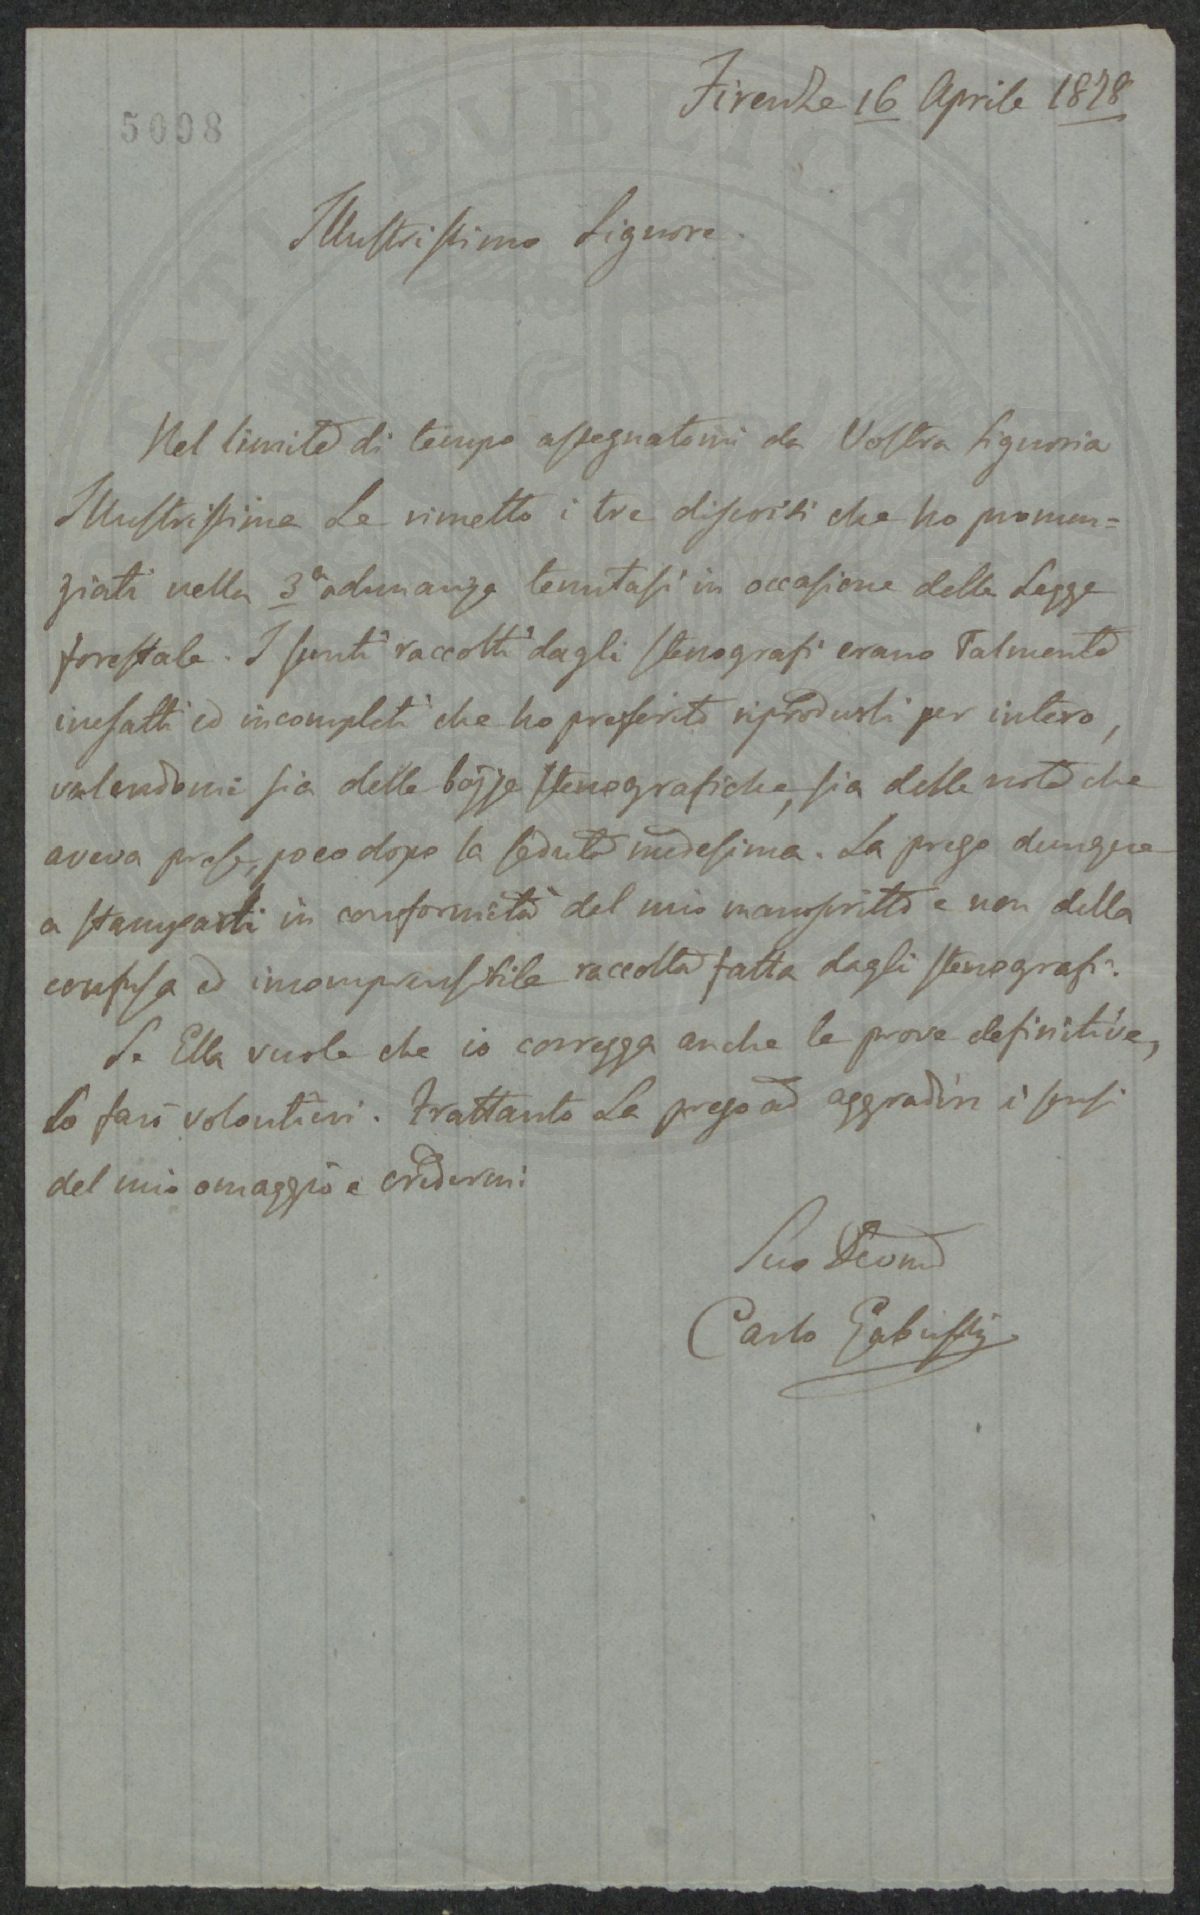 5098
Firenze 16 Aprile 1878
Illustrissimo Signore.
Nel limite di tempo assegnatomi da Vostra Signoria
Illustrissima Le rimetto i tre discorsi che ho pronun=
ziati nella 3a adunanza tenutasi in occasione della Legge
forestale. I sunti raccolti dagli stenografi erano talmente
inesatti ed incompleti che ho preferito riprodurli per intero,
valendomi sia delle bozze stenografiche, sia delle note che
aveva prese, poco dopo la seduta medesima. La prego dunque
a stamparli in conformità del mio manoscritto e non della
confusa ed incomprensibile raccolta fatta dagli stenografi.
Se Ella vuole che io corregga anche le prove definitive,
lo farò volontieri. Frattanto La prego ad aggradire i sensi
del mio omaggio e credermi
Suo
Carlo